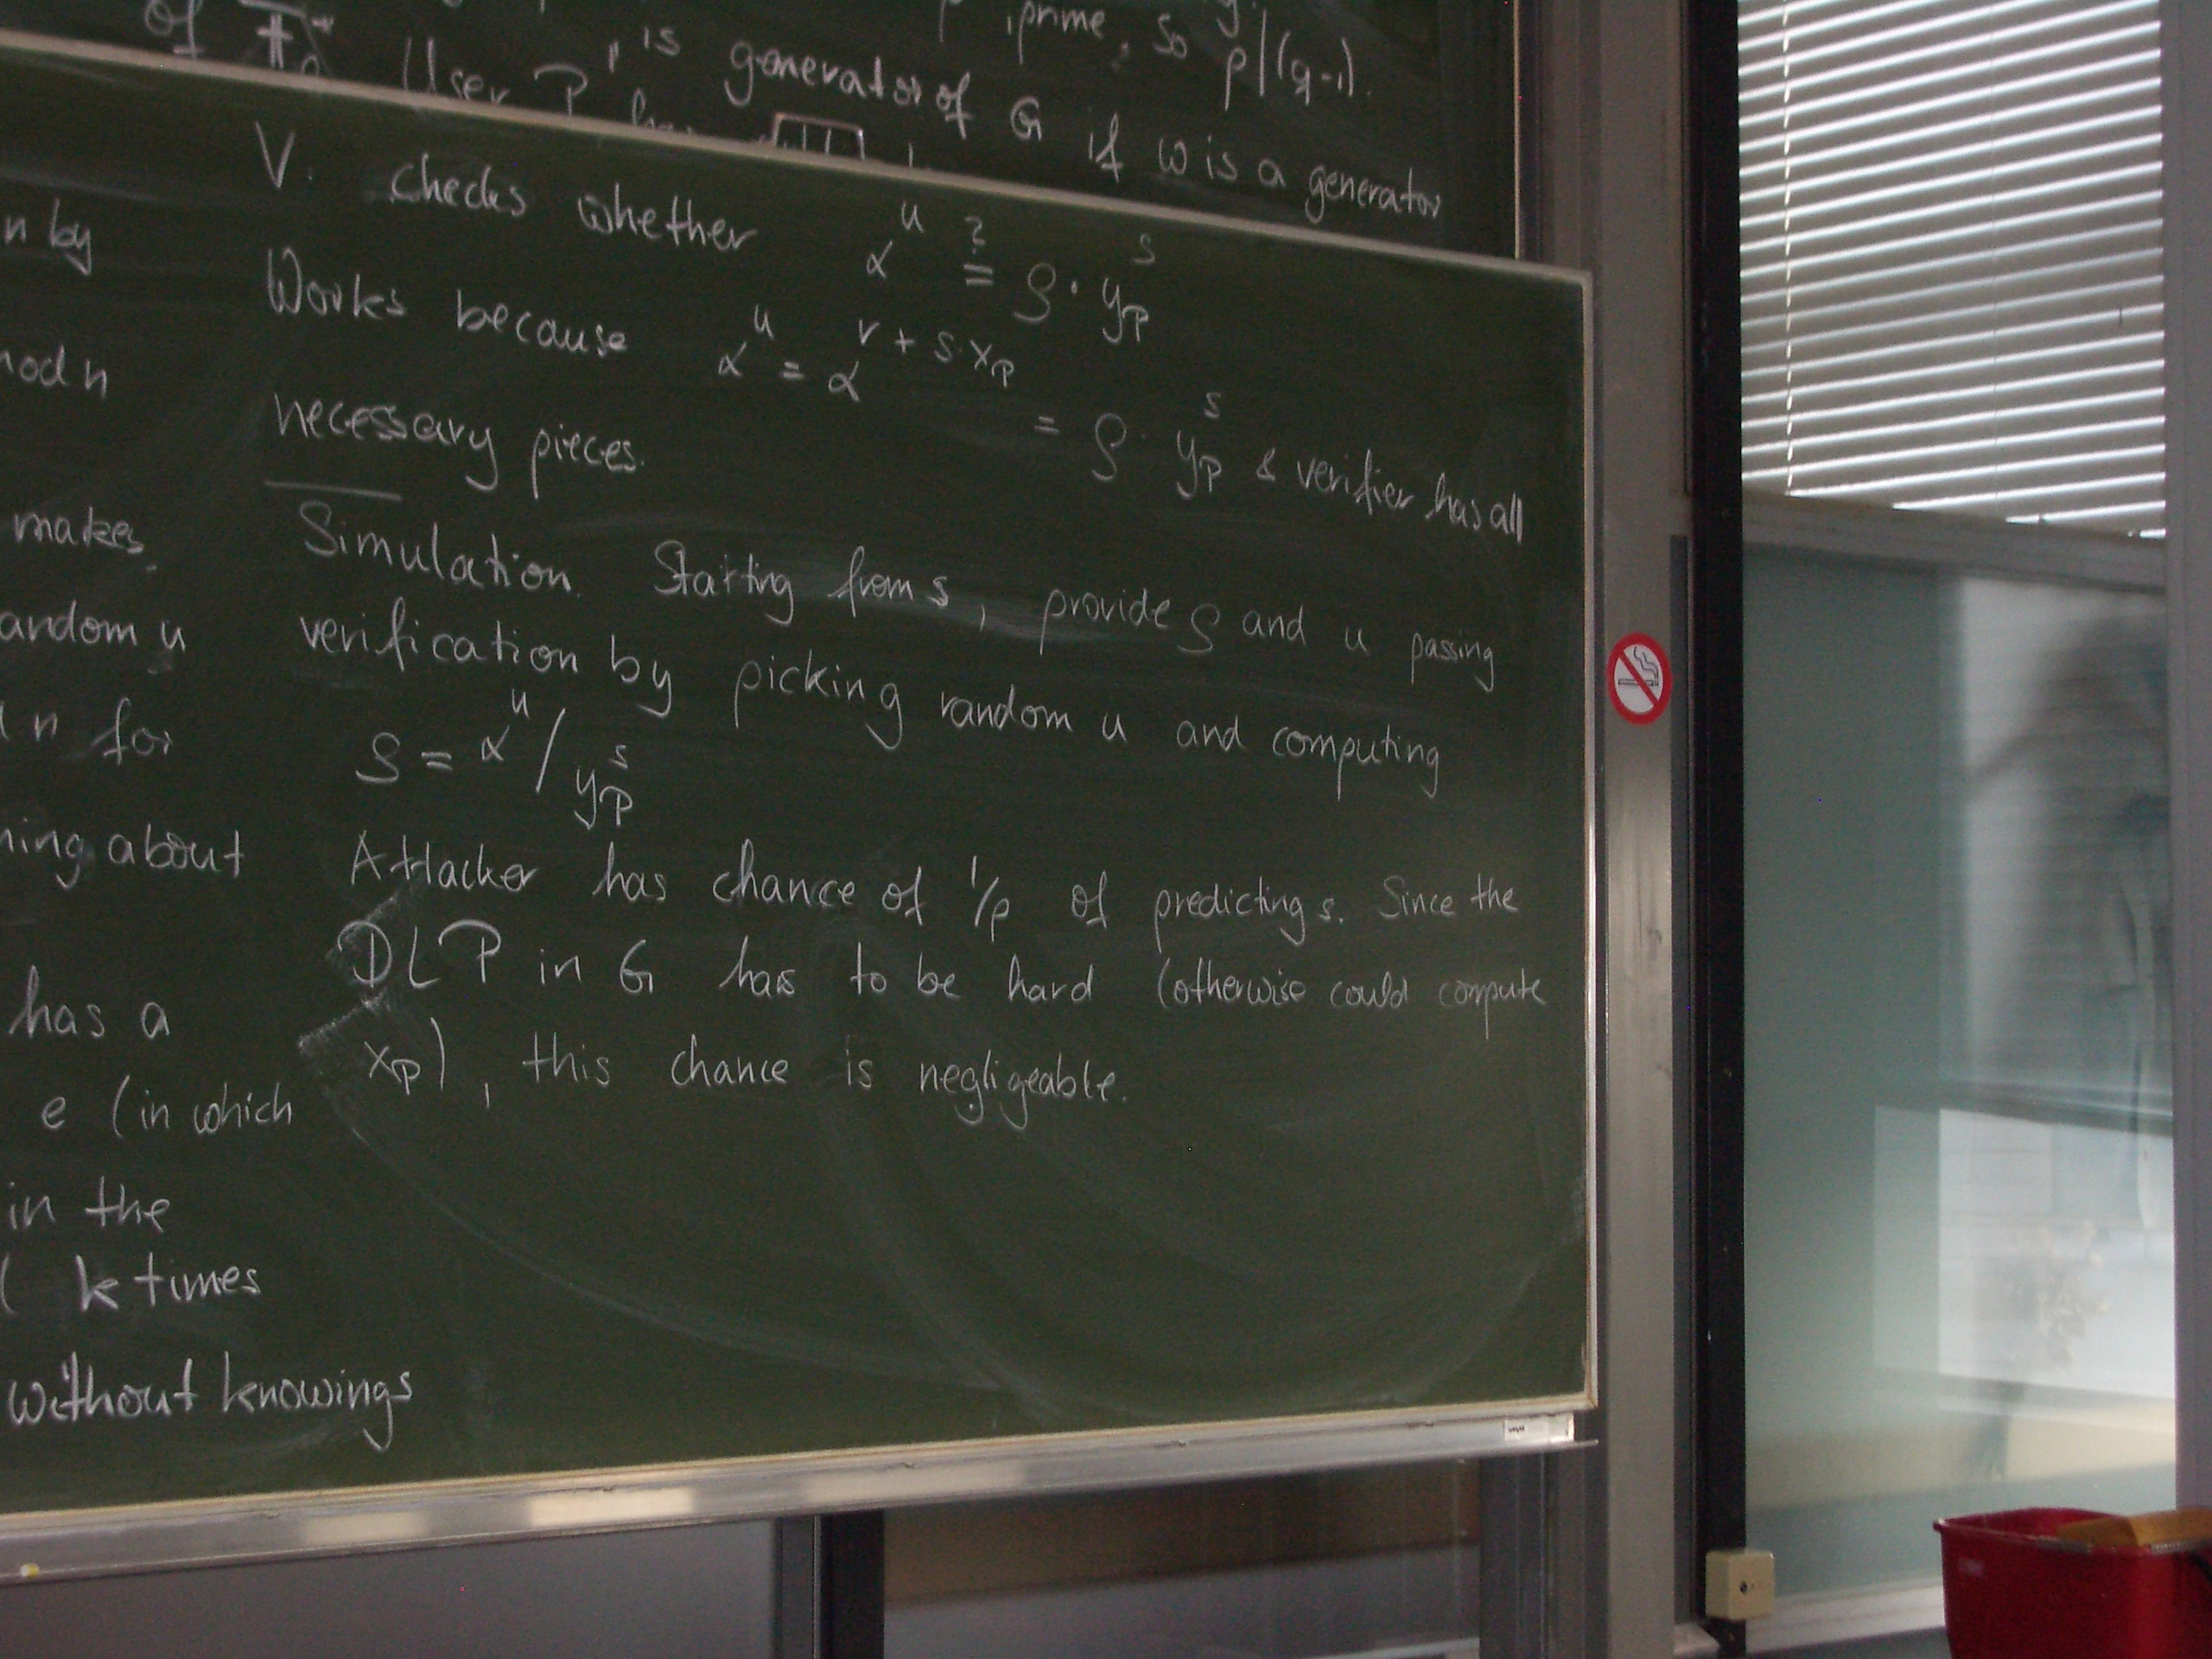 prime, so p|(q-1).
of F_q* is generator of G if ω is a generator
User P
V. checks whether α^u ?= ρ · y_P^s
Works because α^u = α^(r + s·x_P)
= ρ · y_P^s & verifier has all
necessary pieces.
Simulation. Starting from s, provide ρ and u passing
verification by picking random u and computing
ρ = α^u / y_P^s
Attacker has chance of 1/p of predicting s. Since the
DLP in G has to be hard (otherwise could compute
x_P), this chance is negligeable.
n by
mod n
makes
andom u
n for
ning about
has a
e (in which
in the
k times
without knowing s